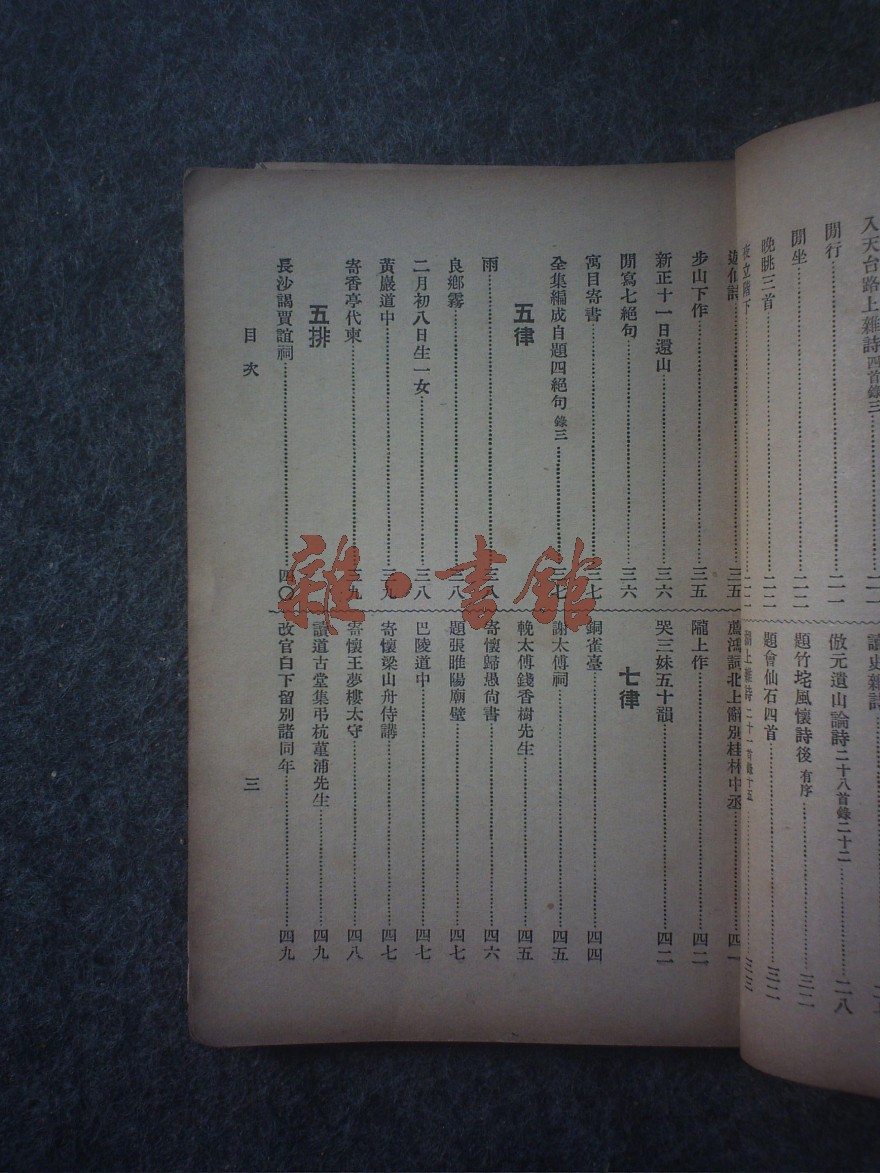 入天台路上雜詩 四首錄三……二一
閒行……二一
閒坐……二二
晚眺三首……二二
夜立階下……二二
讀史雜詩
倣元遺山論詩 二十八首錄二十二……二八
題竹垞風懷詩後 有序……三二
題會仙石四首……三二
湖上雜詩 二十一首錄十五……三三
遊仙詩……三五
步山下作……三五
新正十一日還山……三六
閒寫七絕句……三六
寓目寄書……三七
全集編成自題四絕句 錄三……三七
五律
雨……三八
良鄉霧……三八
二月初八日生一女……三八
黃巖道中……三九
寄香亭代柬……三九
五排
長沙謁賈誼祠……四〇
薦鴻詞北上辭別桂林中丞……四一
隴上作……四二
哭三妹五十韻……四二
七律
銅雀臺……四四
謝太傅祠……四五
輓太傅錢香樹先生……四五
寄懷歸愚尙書……四六
題張睢陽廟壁……四七
巴陵道中……四七
寄懷梁山舟侍講……四七
寄懷王夢樓太守……四八
讀道古堂集弔杭堇浦先生……四九
改官白下留別諸同年……四九
目次
三
雜·書館